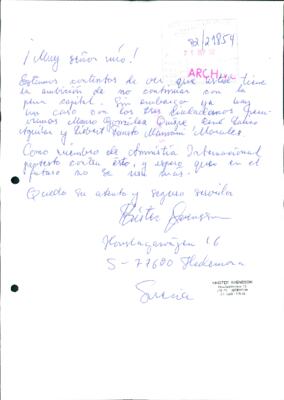 82/21854
ARCH
¡Muy señor mío!
Estamos contentos de ver, que usted tiene
la ambición de no continuar con la
pena capital. Sin embargo ya hay
un caso con los tres ciudadanos
Mauro González Quispe, René
Aguilar y Libert Fausto Mamani Morales
Como miembro de Amnistía Internacional
protesto contra esto, y espero que en el
futuro no se usa más.
Quedo su atento y seguro servidor
Christer Svensson
16
S-77600 Hedemora
Suecia
CHRISTER SVENSSON